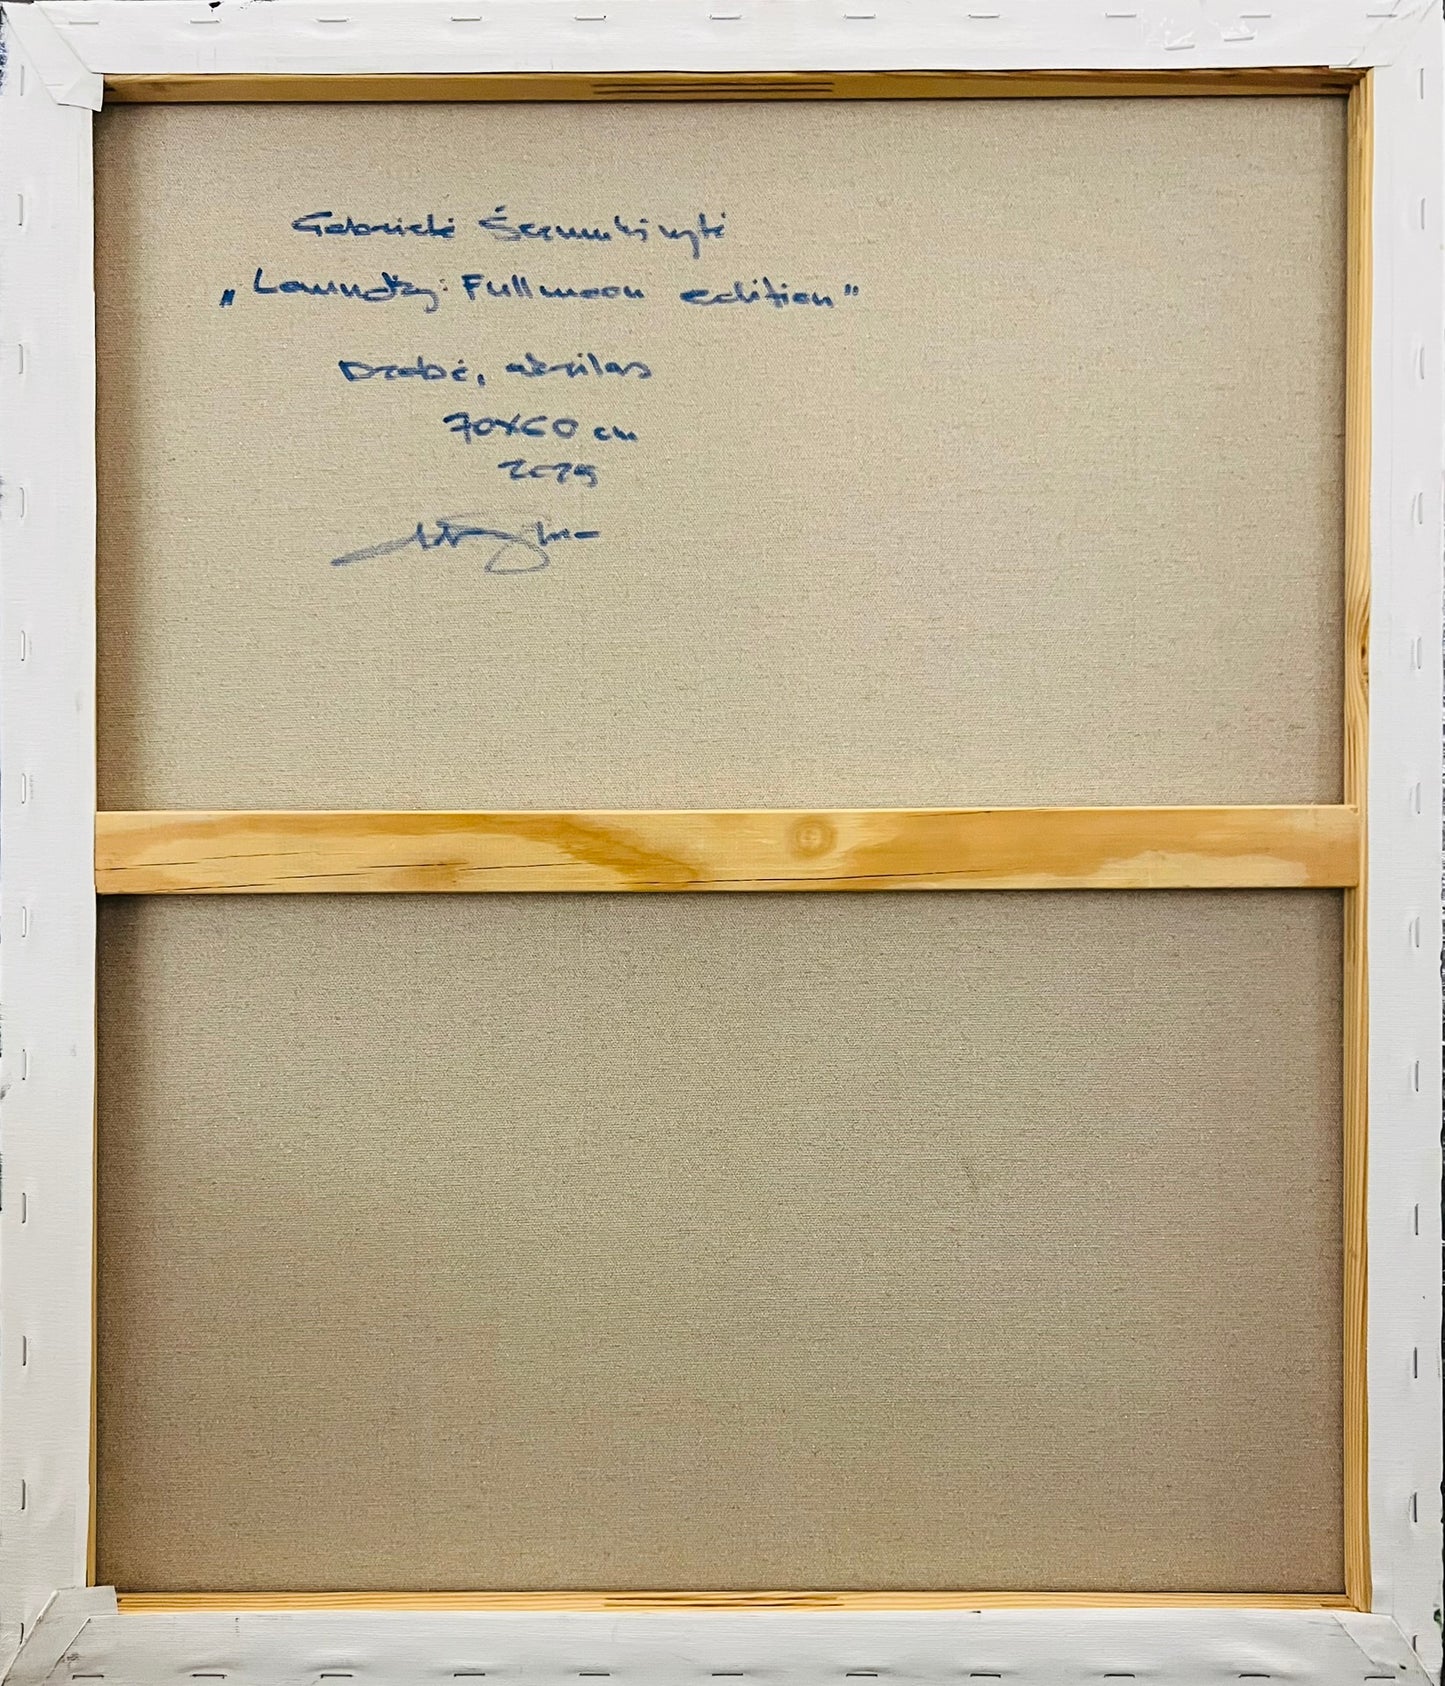 Gabrielė Šermukšnytė
„Laundry: Fullmoon edition"
Drobė, akrilas
70x60 cm
2025